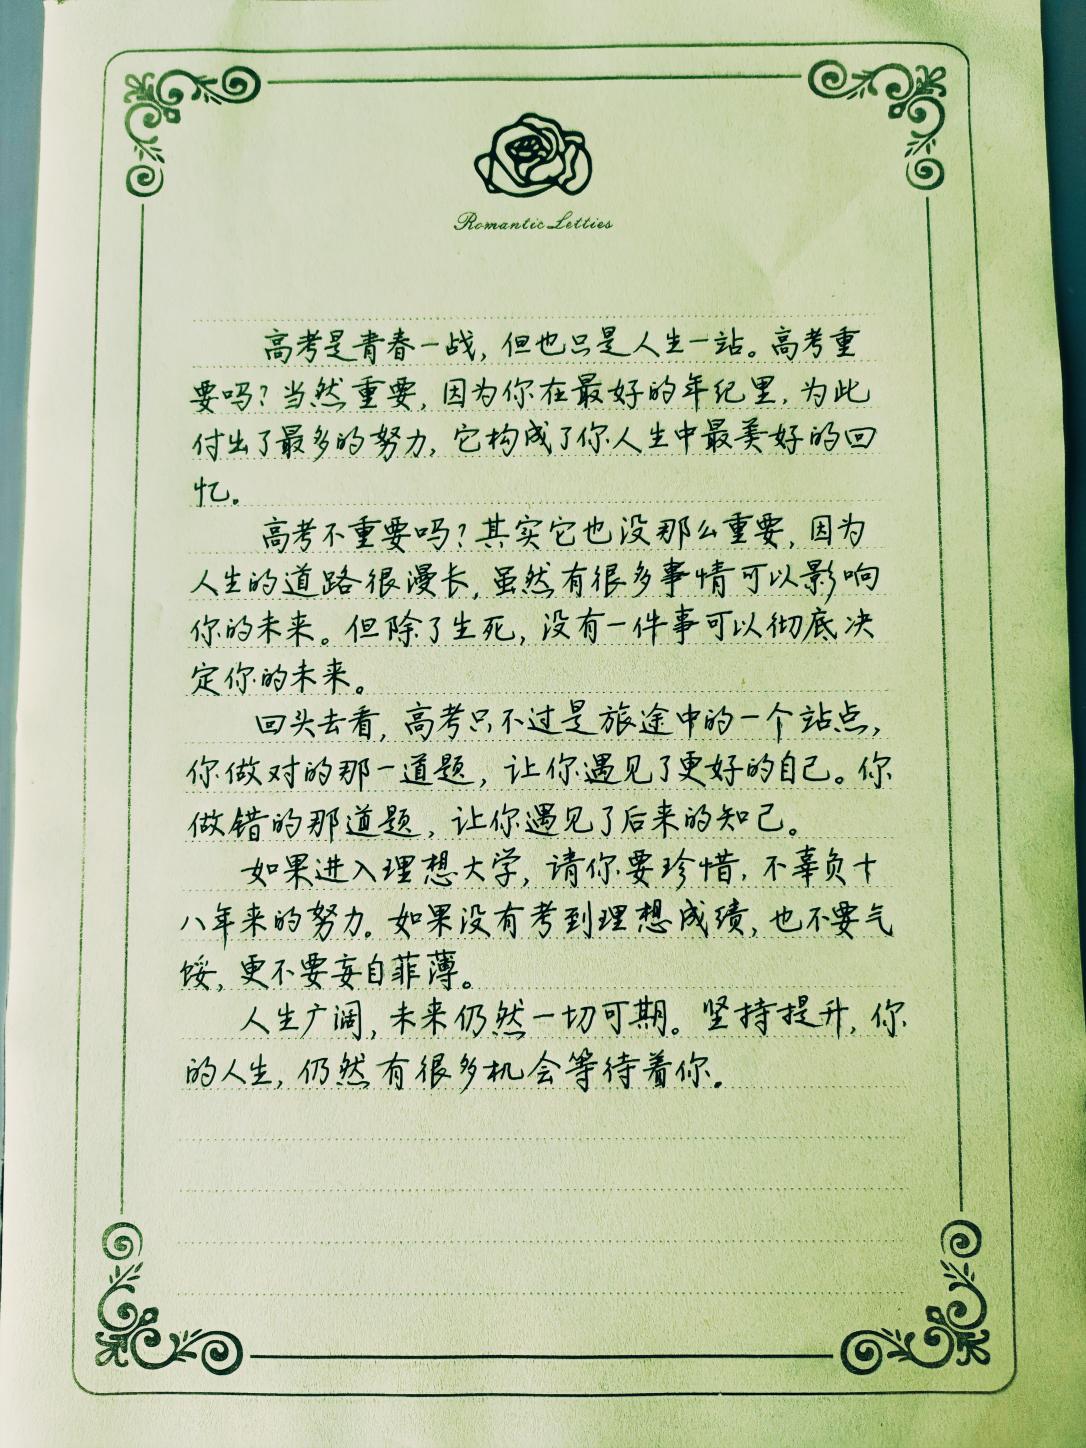 Romantic Letties
高考是青春一战，但也只是人生一站。高考重
要吗？当然重要，因为你在最好的年纪里，为此
付出了最多的努力，它构成了你人生中最美好的回
忆。
高考不重要吗？其实它也没那么重要，因为
人生的道路很漫长，虽然有很多事情可以影响
你的未来。但除了生死，没有一件事可以彻底决
定你的未来。
回头去看，高考只不过是旅途中的一个站点，
你做对的那一道题，让你遇见了更好的自己。你
做错的那道题，让你遇见了后来的知己。
如果进入理想大学，请你要珍惜，不辜负十
八年来的努力。如果没有考到理想成绩，也不要气
馁，更不要妄自菲薄。
人生广阔，未来仍然一切可期。坚持提升，你
的人生，仍然有很多机会等待着你。